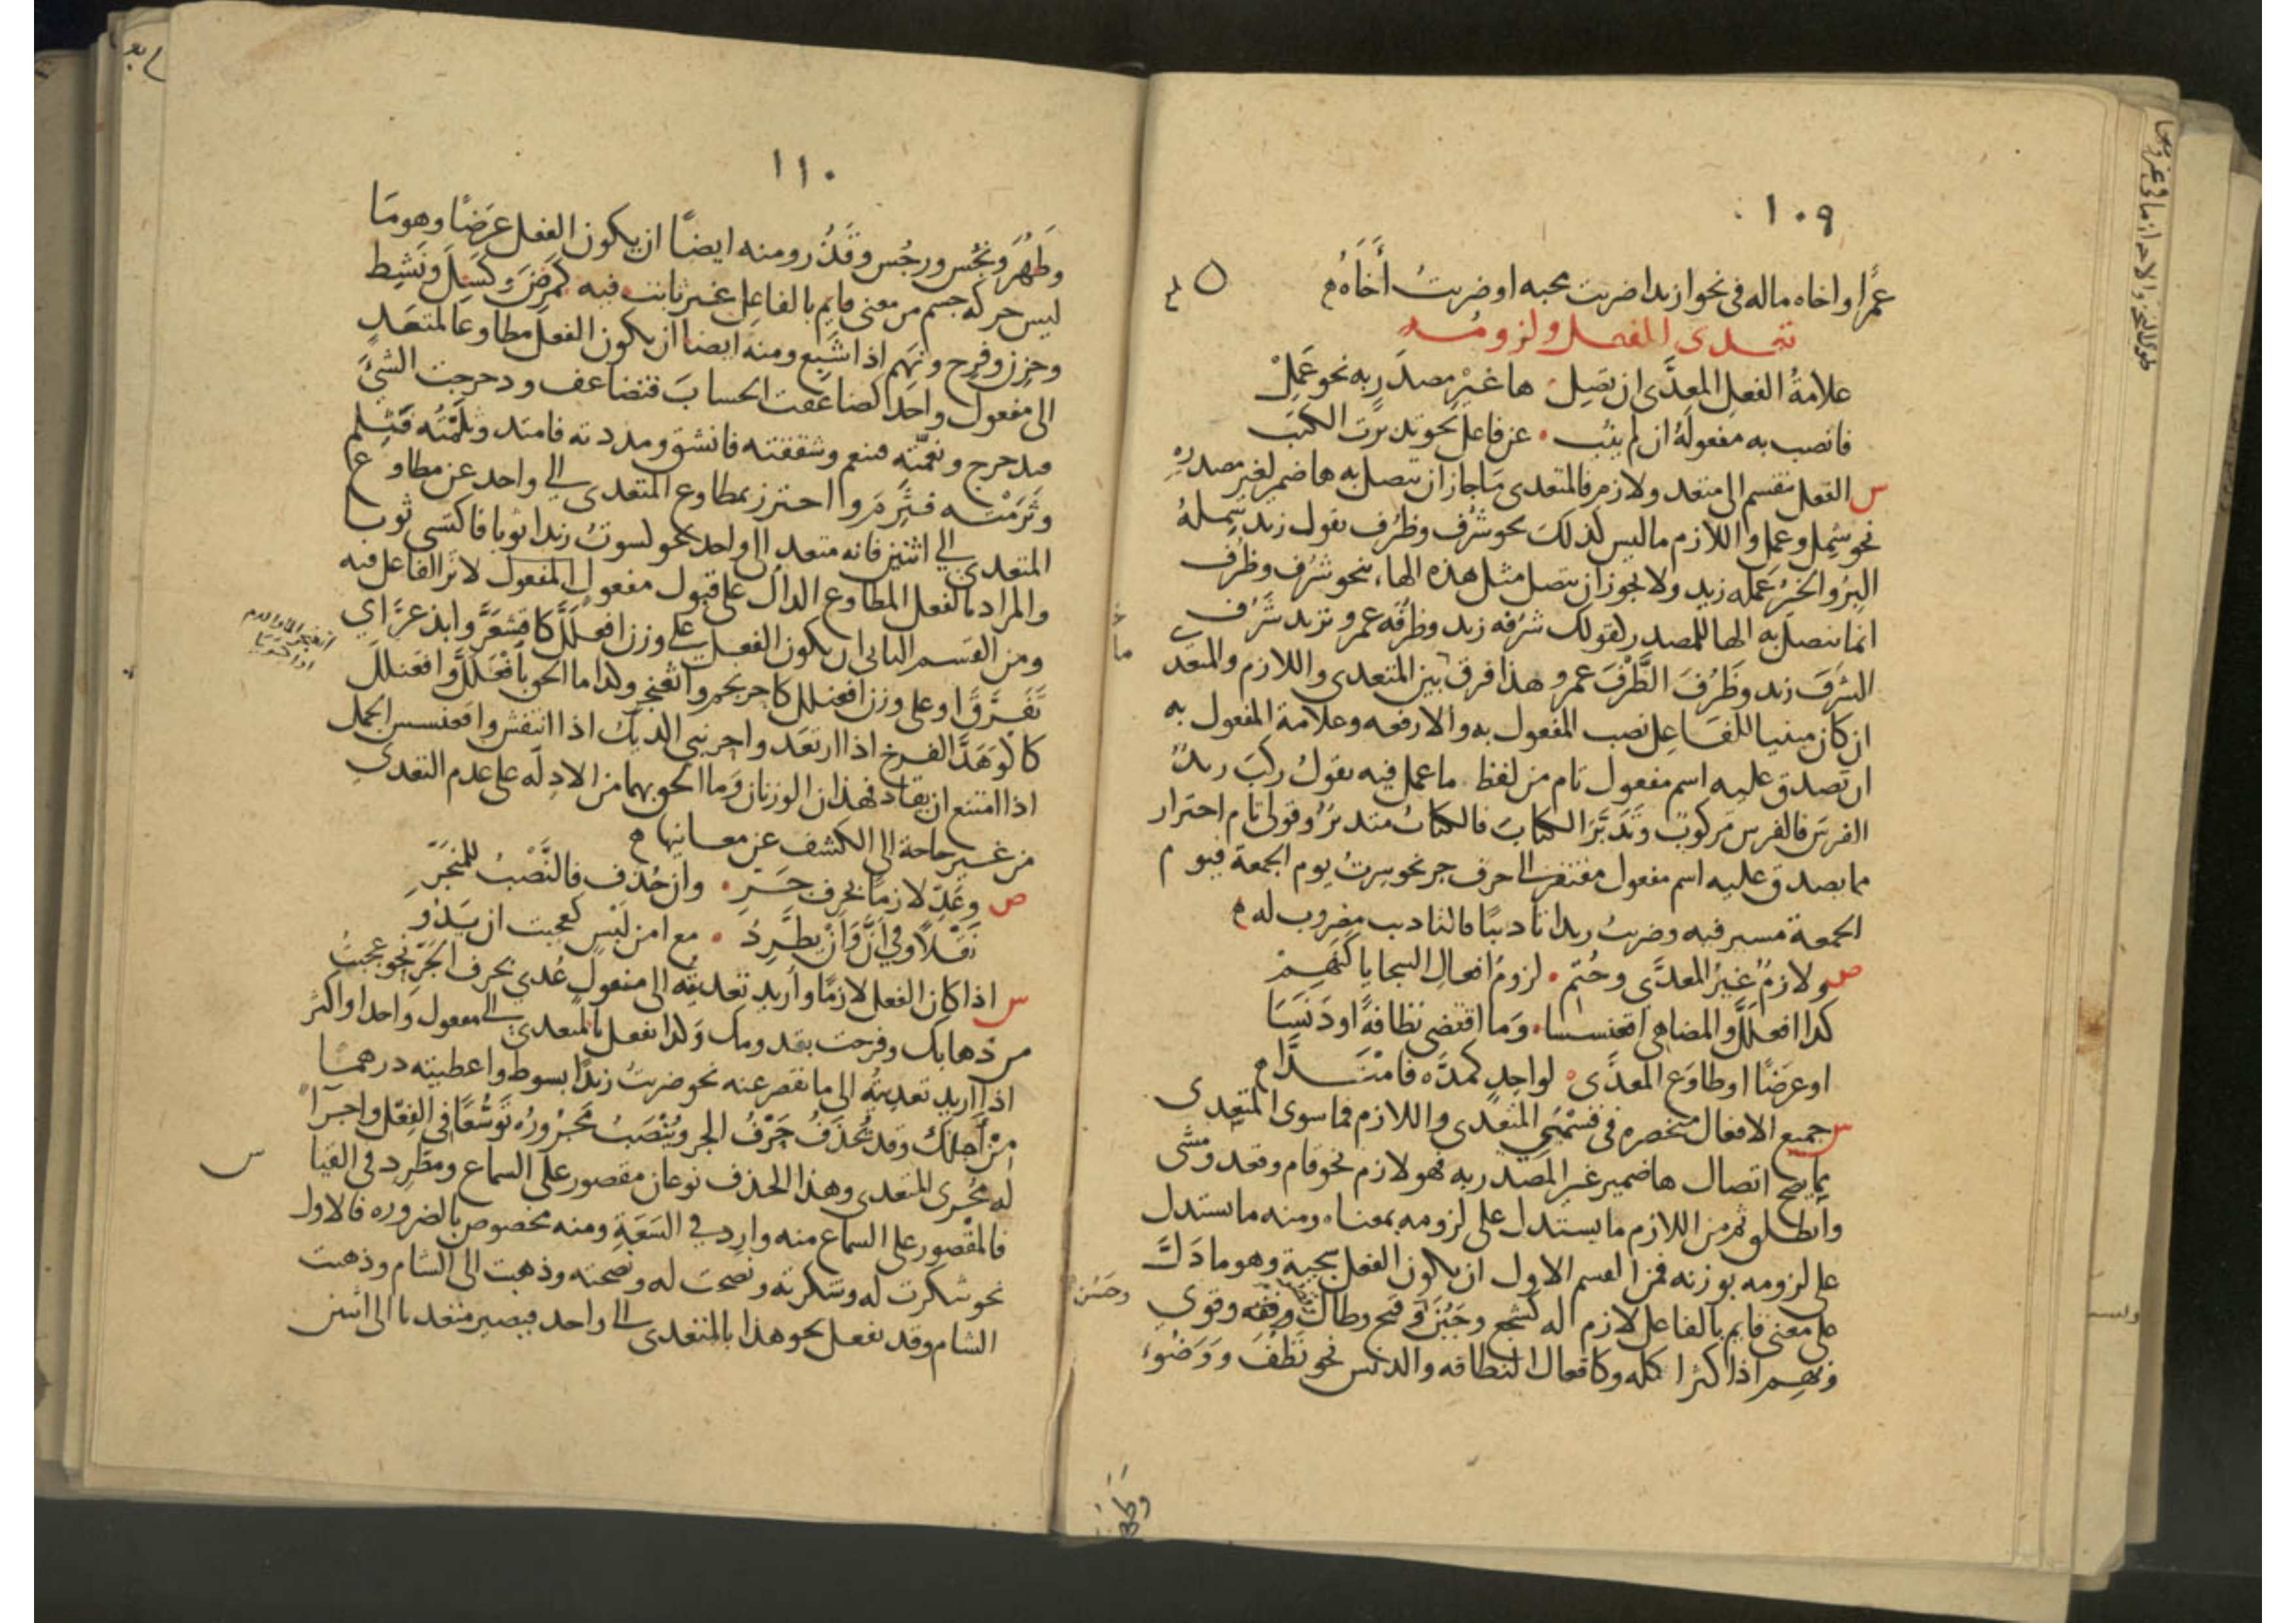 ١٠٩
عمرًا واخاه ماله في نحو ازيدا ضربت محبه او ضربتُ أَخَاهُ
تعدى الفعل ولزومه
علامةُ الفعلِ المعدَّى ان تصِل ها غيْرِ مصدَرٍ به نحو عَمِلْ
فانصب به مفعولَهُ ان لم ينُب عن فاعل نحو تدبرت الكتب
س الفعل ينقسم الى متعد ولازم فالمتعدى ما جاز ان يتصل به ها ضمير لغير مصدره
نحو شمل وعمل واللازم ما ليس كذلك نحو شَرُف وظَرُف تقول زيد شمِلهُ
البِرُّ والخيرُ عَمله زيد ولا يجوز ان يتصل مثل هذه الهاء بنحو شَرُف وظَرُف
انما يتصل به الها للمصدر كقولك شرُفه زيد وظرُفه عمرو تريد شَرُف
الشرَفَ زيد وظَرُفَ الظَّرْفَ عمرو هذا فرق بين المتعدى واللازم والمتعدى
ان كان مبنيا للفاعل نصب المفعول به والا رفعه وعلامة المفعول به
ان تصدق عليه اسم مفعول تام من لفظ ما عمل فيه تقول ركبَ زيدٌ
الفرسَ فالفرس مركوبٌ وتَدَبَّرَ الكتابَ فالكتابُ متدبَّرٌ وقولى تام احتراز
مما يصدق عليه اسم مفعول مفتقر الى حرف جر نحو سِرتُ يوم الجمعة فيوم
الجمعة مسير فيه وضربتُ زيدا تاديبًا فالتاديب مضروب له
ص ولازمٌ غيرُ المعدَّى وحُتم لزومُ افعالِ السجايا كنَهِمْ
كذا افعلَلَّ والمضاهى اقعنسسا وَما اقتضى نظافةً او دَنَسَا
او عرَضًا او طاوَعَ المعدَّى لواحِدٍ كمدَّه فامْتَدَّا
س جميع الافعال منحصره في قسْمَيِ المتعدى واللازم فما سوى المتعدى
مما يصح اتصال ها ضمير غير المصدر به فهو لازم نحو قام وقعد ومشى
وانطلق ثم من اللازم ما يستدل على لزومه بمعناه ومنه ما يستدل
على لزومه بوزنه فمن القسم الاول ان يكون الفعل سجية وهو ما دَلَّ
على معنى قايم بالفاعل لازم له كشجع وجَبُنَ وقبح وطال وفقه وقوى
ونهم اذا كثر اكله وكافعال النظافه والدنس نحو نَظُفَ ووَضُوءَ
وحَسُنَ
١١٠
وطَهُرَ ونجُس ورجُس وقَذُر ومنه ايضًا ان يكون الفعل عَرَضًا وهو مَا
ليس حركه جسم من معنى قايم بالفاعل غير ثابت فيه كمَرِضَ وكسِلَ ونَشِط
وحزن وفرح ونهم اذا شبع ومنه ايضا ان يكون الفعل مطاوعا لمتعدٍ
الى مفعول واحد كضاعَفت الحسابَ فتضاعف ودحرجت الشيَ
فتدحرج ونعّمته فتنعم وشققته فانشق ومددته فامتد وثَلَمْتُه فثلِم
وثَرَمْته فثَرِمَ واحترز بمطاوع المتعدى الى واحد عن مطاوع
المتعدى الى اثنين فانه متعد الى واحد نحو كسوتُ زيدا ثوبا فاكتسى ثوبا
والمراد بالفعل المطاوع الدال على قبول مفعول لاثر الفاعل فيه
ومن القسم الثانى ان يكون الفعل على وزن افعلَلَّ كاقشعَرَّ وابذعرَّ اي
تَفَرَّقَ او على وزن افعنلل كاحرنجم واثعنجر وكذا ما الحق بافْعَلَلَّ وافعَنللَ
كاكوَهَدَّ الفرخ اذا ارتعَد واحرنبى الديك اذا انتفش واقعنسس الجمل
اذا امتنع ان يقاد فهذان الوزنان وَما الحق بهما من الادِله على عدم التعدى
من غير حاجة الى الكشف عن معانيها
ص وعَدِّ لازمًا بحرفِ جَرِّ وان حُذف فالنَّصْبُ للمنجَرِّ
نَقْلًا وفي أنَّ وأَنْ يطَّرِدُ مع امن لَبْسٍ كعجبت ان يَدُو
س اذا كان الفعل لازمًا وأُريد تعديتُه الى مفعول عُدى بحرف الجَرّ نحو عجبتُ
من ذهابك وفرحت بقدومك وكذا تفعل بالمتعدى الى مفعول واحد او اكثر
اذا اريد تعديتُه الى ما نقصر عنه نحو ضربتُ زيدًا بسوط واعطيته درهما
مِنْ أجلك وقد يُحذَفُ حَرْفُ الجر ويُنْصَبُ مجْرُورُه تَوَسُّعًا في الفِعْل واجرآً
له مُجْرى المتعدى وهذا الحذف نوعان مقصور على السماع ومطَّرِد في القيا
س
فالمقْصور على السماع منه وارد في السَّعَةِ ومنه مخصوص بالضروره فالاول
نحو شكرت له وشكرته ونصحت له ونصحته وذهبت الى الشام وذهبت
الشام وقد تفعل نحو هذا بالمتعدى الى واحد فيصير متعديا الى اثنين